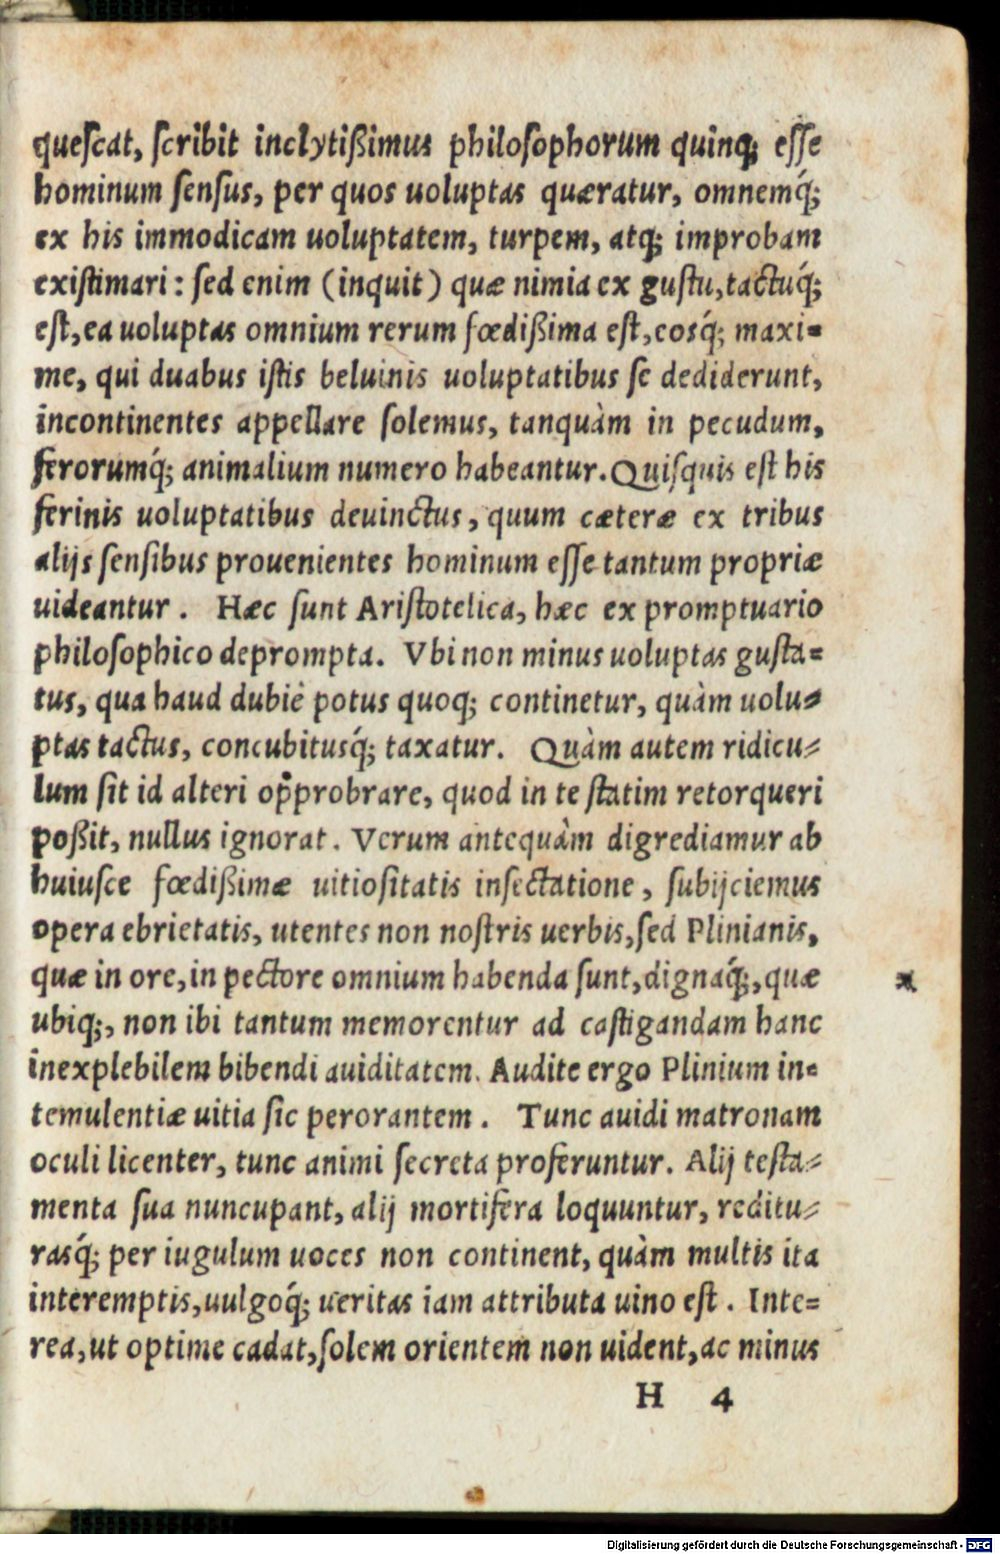 quescat, scribit inclytißimus philosophorum quinq; esse
hominum sensus, per quos uoluptas quæratur, omnemq́;
ex his immodicam uoluptatem, turpem, atq; improbam
existimari: sed enim (inquit) quæ nimia ex gustu, tactuq́;
est, ea uoluptas omnium rerum fœdißima est, eosq́; maxi-
me, qui duabus istis beluinis uoluptatibus se dediderunt,
incontinentes appellare solemus, tanquàm in pecudum,
ferorumq́; animalium numero habeantur. Quisquis est his
ferinis uoluptatibus deuinctus, quum cæteræ ex tribus
alijs sensibus prouenientes hominum esse tantum propriæ
uideantur. Hæc sunt Aristotelica, hæc ex promptuario
philosophico deprompta. Vbi non minus uoluptas gusta-
tus, qua haud dubiè potus quoq; continetur, quàm uolu-
ptas tactus, concubitusq́; taxatur. Quàm autem ridicu-
lum sit id alteri opprobrare, quod in te statim retorqueri
poßit, nullus ignorat. Verum antequàm digrediamur ab
huiusce fœdißimæ uitiositatis insectatione, subijciemus
opera ebrietatis, utentes non nostris uerbis, sed Plinianis,
quæ in ore, in pectore omnium habenda sunt, dignaq́;, quæ
ubiq;, non ibi tantum memorentur ad castigandam hanc
inexplebilem bibendi auiditatem. Audite ergo Plinium in-
temulentiæ uitia sic perorantem. Tunc auidi matronam
oculi licenter, tunc animi secreta proferuntur. Alij testa-
menta sua nuncupant, alij mortifera loquuntur, reditu-
rasq́; per iugulum uoces non continent, quàm multis ita
interemptis, uulgoq́; ueritas iam attributa uino est. Inte-
rea, ut optime cadat, solem orientem non uident, ac minus
H 4
Digitalisierung gefördert durch die Deutsche Forschungsgemeinschaft - DFG